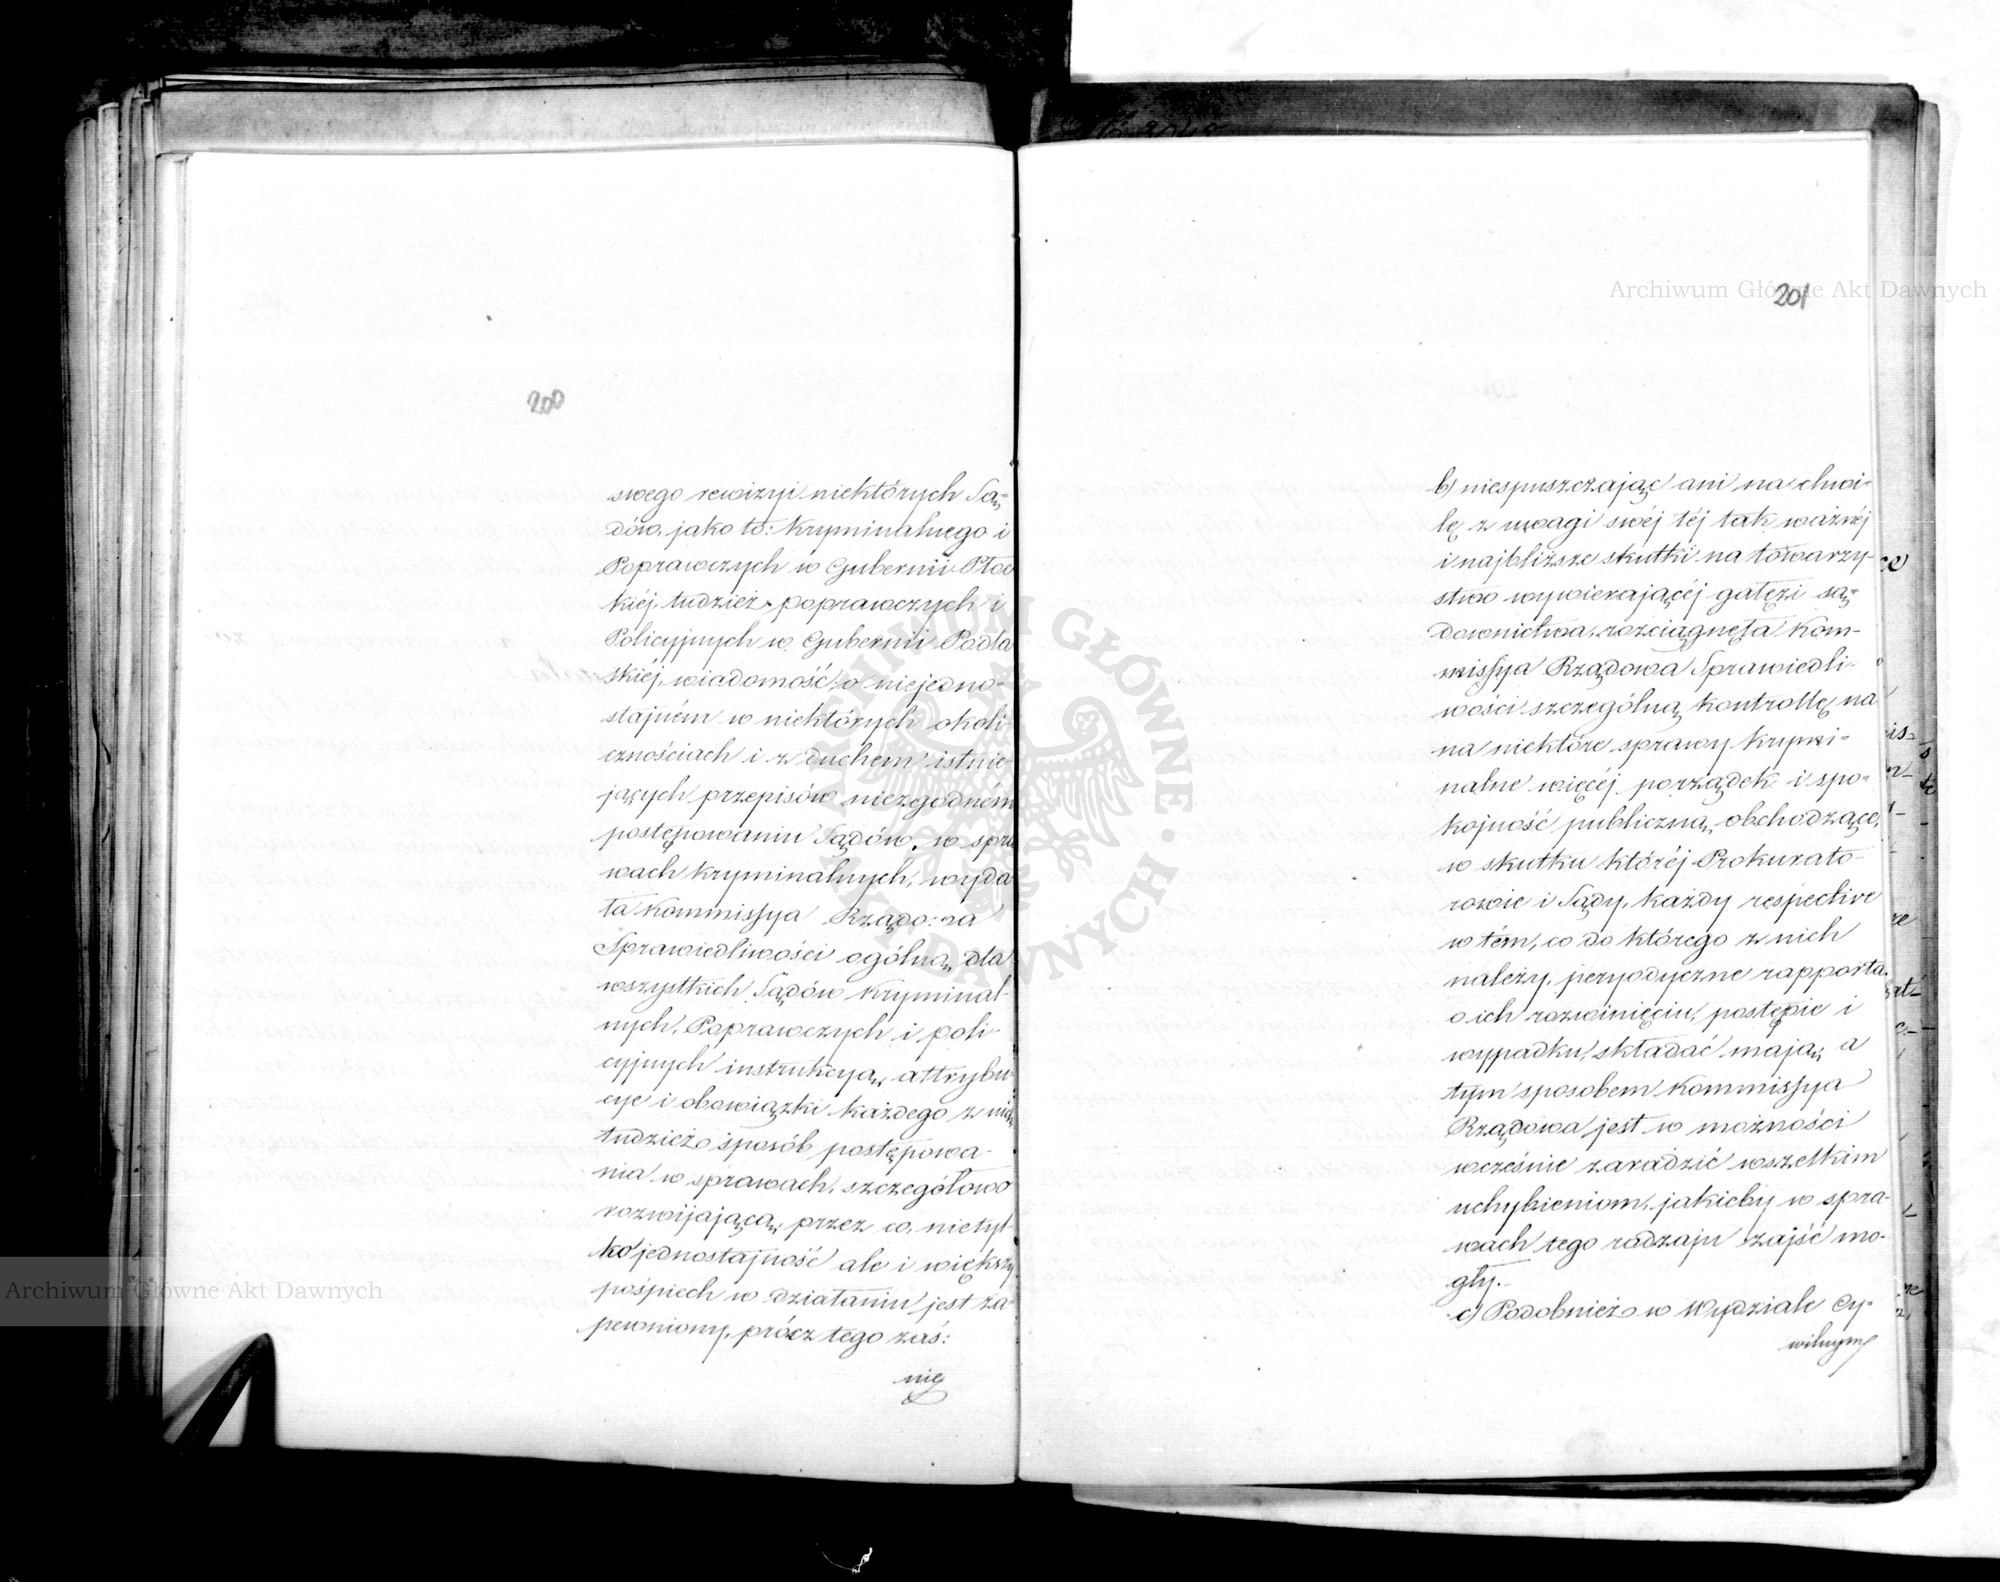 200
swego rewizyi niektórych Są-
dów, jako to: Kryminalnego i
Poprawczych w Gubernii Płoc
kiéj, tudzież poprawczych i
Policyjnych w Gubernii Podla
skiéj, wiadomość o niejedno-
stajném w niektórych okoli-
cznościach i z duchem istnie-
jących przepisów niezgodném
postępowaniu Sądów, w spra
wach kryminalnych, wyda
ła Kommissya Rządo: na
Sprawiedliwości ogólną dla
wszystkich Sądów Kryminal-
nych, Poprawczych i poli-
cyjnych instrukcyą, attrybu-
cye i obowiązki każdego z nich
tudzież sposób postępowa-
nia w sprawach, szczegółowo
rozwijającą, przez co, nietyl-
ko jednostajność ale i większy
pośpiech w działaniu jest za-
pewniony, prócz tego zaś:
nie
201
b) niespuszczając ani na chwi-
lę z uwagi swéj téj tak ważnéj
i najbliższe skutki na towarzy-
stwo wywierającéj gałęzi są-
downictwa, rozciągnęła Kom-
missya Rządowa Sprawiedli-
wości szczególną kontrollę na
na niektóre sprawy krymi-
nalne więcéj porządek i spo-
kojność publiczną obchodzące,
w skutku któréj Prokurato-
rowie i Sądy, każdy respective
w tém, co do którego z nich
należy, peryodyczne rapporta
o ich rozwinięciu, postępie i
wypadku, składać mają, a
tym sposobem Kommissya
Rządowa jest w możności
wcześnie zaradzić wszelkim
uchybieniom, jakieby w spra-
wach tego rodzaju zajść mo-
gły.-
c) Podobnież w Wydziale Cy-
wilnym
Archiwum Główne Akt Dawnych
Archiwum Główne Akt Dawnych
ARCHIWUM GŁÓWNE AKT DAWNYCH